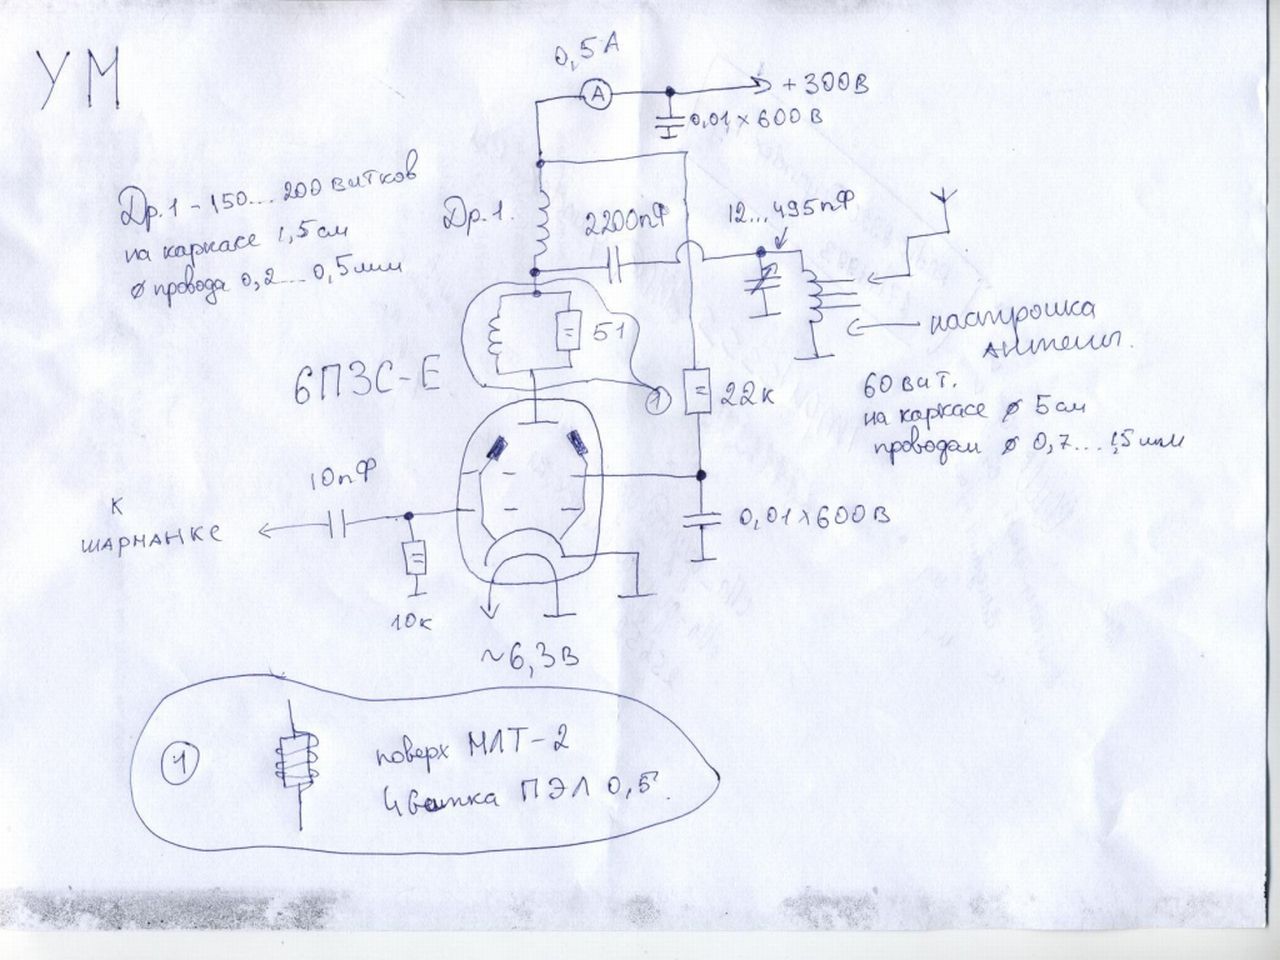 УМ
0,5А
А
+300В
0,01×600В
Др.1-150...200 витков
на каркасе 1,5см
ø провода 0,2...0,5мм
Др.1.
2200пФ
12...495пФ
51
настройка
антены.
6П3С-Е
1
22к
60 вит.
на каркасе ø 5см
проводам ø 0,7...1,5мм
10пФ
к
шарманке
0,01×600В
10к
~6,3В
1
поверх МЛТ-2
4 витка ПЭЛ 0,5.